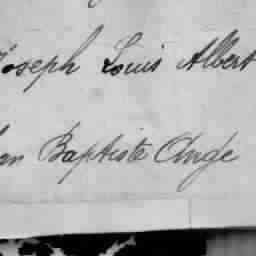 Joseph Louis Albert
Baptiste Ange